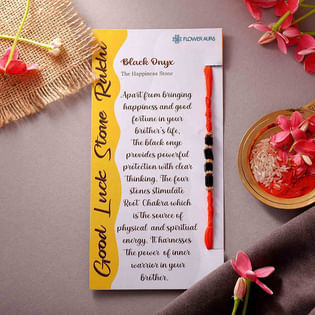 FLOWER AURA
Good Luck Stone Rakhi
Black Onyx
The Happiness Stone
Apart from bringing
happiness and good
fortune in your
brother's life,
the black onyx
provides powerful
protection with clear
thinking. The four
stones stimulate
Root Chakra which
is the source of
physical and spiritual
energy. It harnesses
The power of inner
warrior in your
brother.